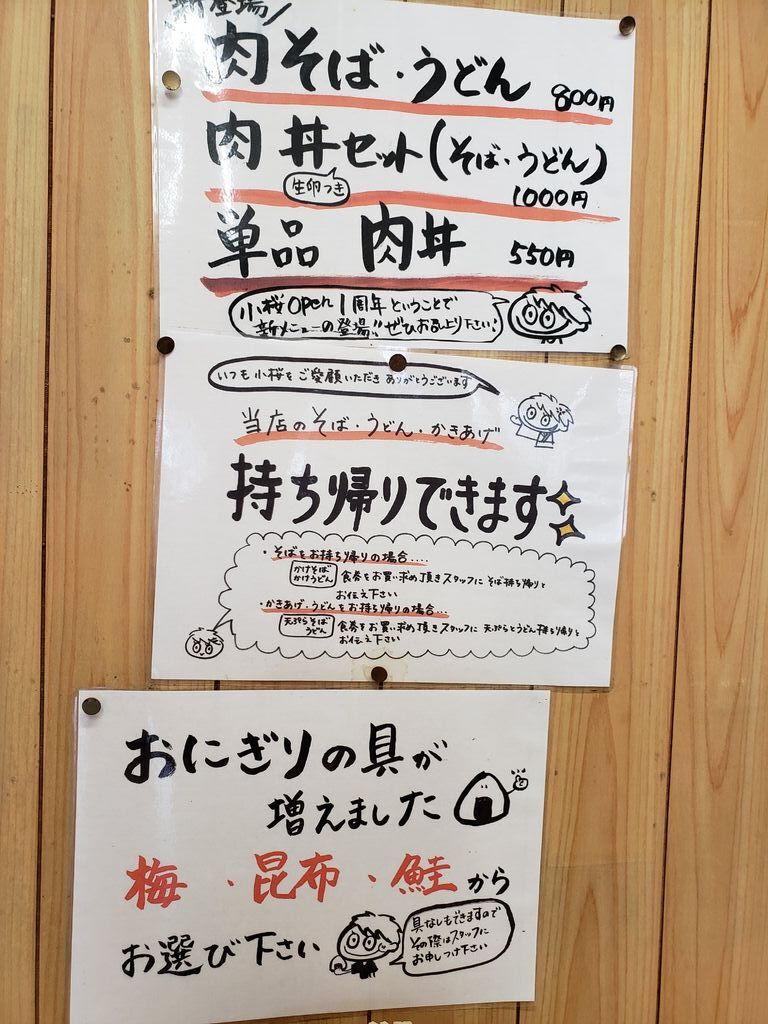 新登場/
肉そば・うどん 800円
肉丼セット(そば・うどん)
生卵つき
1000円
単品 肉丼 550円
小桜open1周年ということで
新メニューの登場!!ぜひお召し上り下さい!
いつも小桜をご愛顧いただきありがとうございます
当店のそば・うどん・かきあげ
持ち帰りできます
・そばをお持ち帰りの場合....
かけそば
かけうどん
食券をお買い求め頂きスタッフにそば持ち帰りと
お伝え下さい
・かきあげ・うどんをお持ち帰りの場合...
天ぷらそば
うどん
食券をお買い求め頂きスタッフに天ぷらとうどん持ち帰りと
お伝え下さい
おにぎりの具が
増えました
梅・昆布・鮭から
お選び下さい
具なしもできますので
その際はスタッフに
お申しつけ下さい